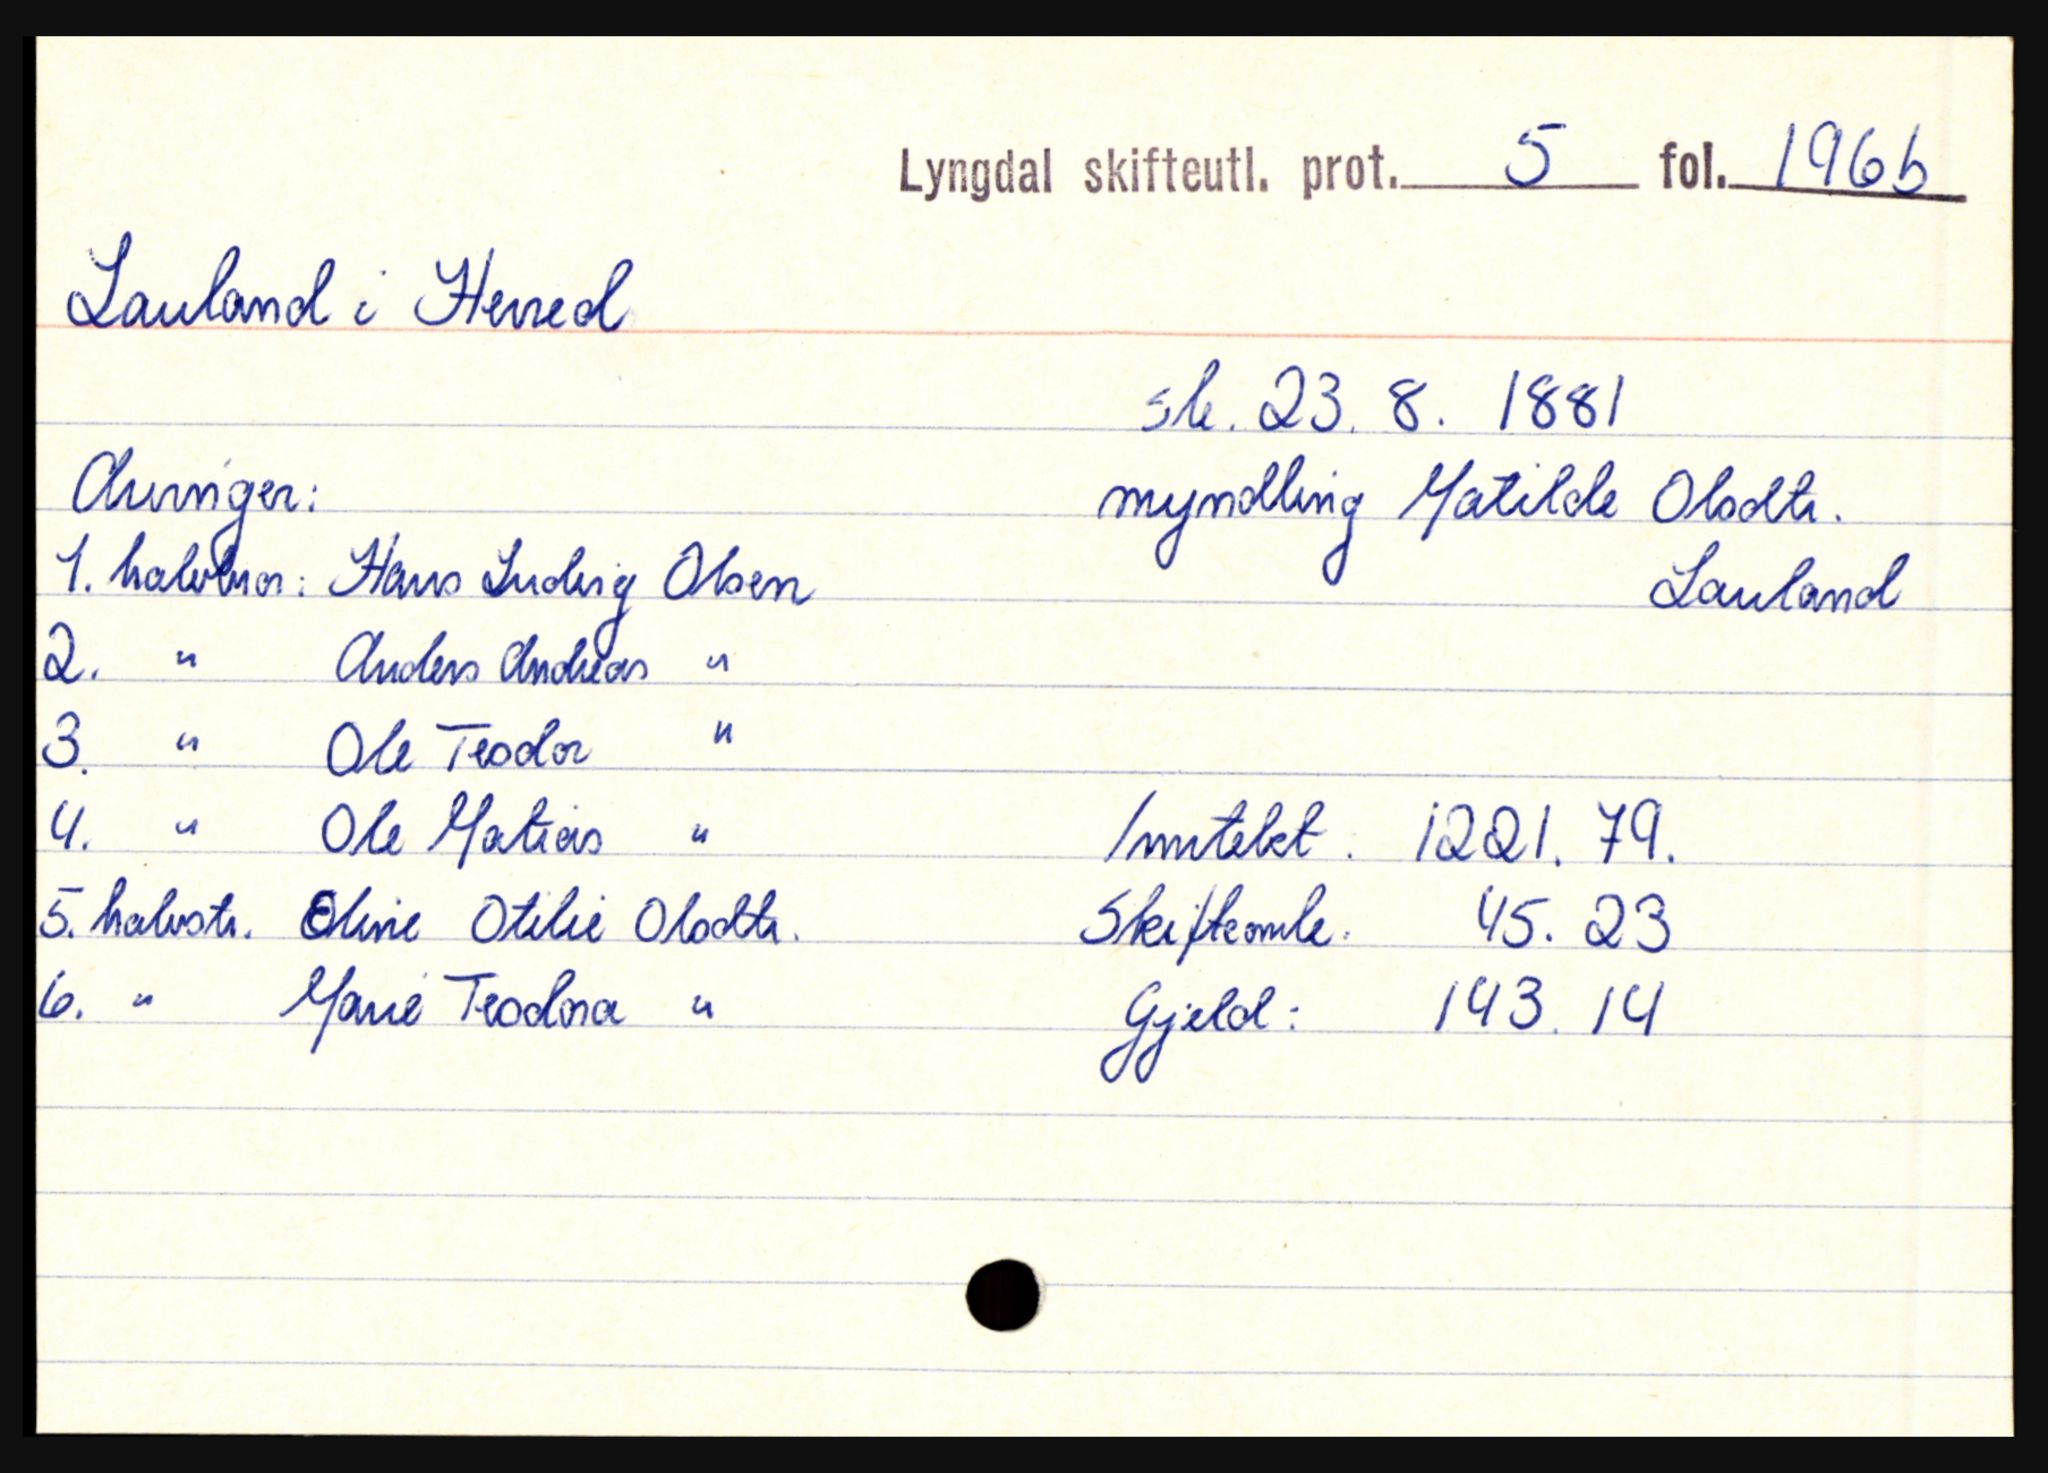 Lyngdal skifteutl. prot. 5 fol. 196b
Lauland i Herred
sk. 23. 8. 1881
myndling Matilde Olsdtr.
Lauland
Arvinger:
1. halvbror: Hans Ludvig Olsen
2. " Anders Andreas "
3. " Ole Teodor "
4. " Ole Matias "
5. halvstr. Oline Otilie Olsdtr.
6. " Marie Teodora "
Inntekt: 1221. 79.
Skifteomk: 45. 23
Gjeld: 143. 14